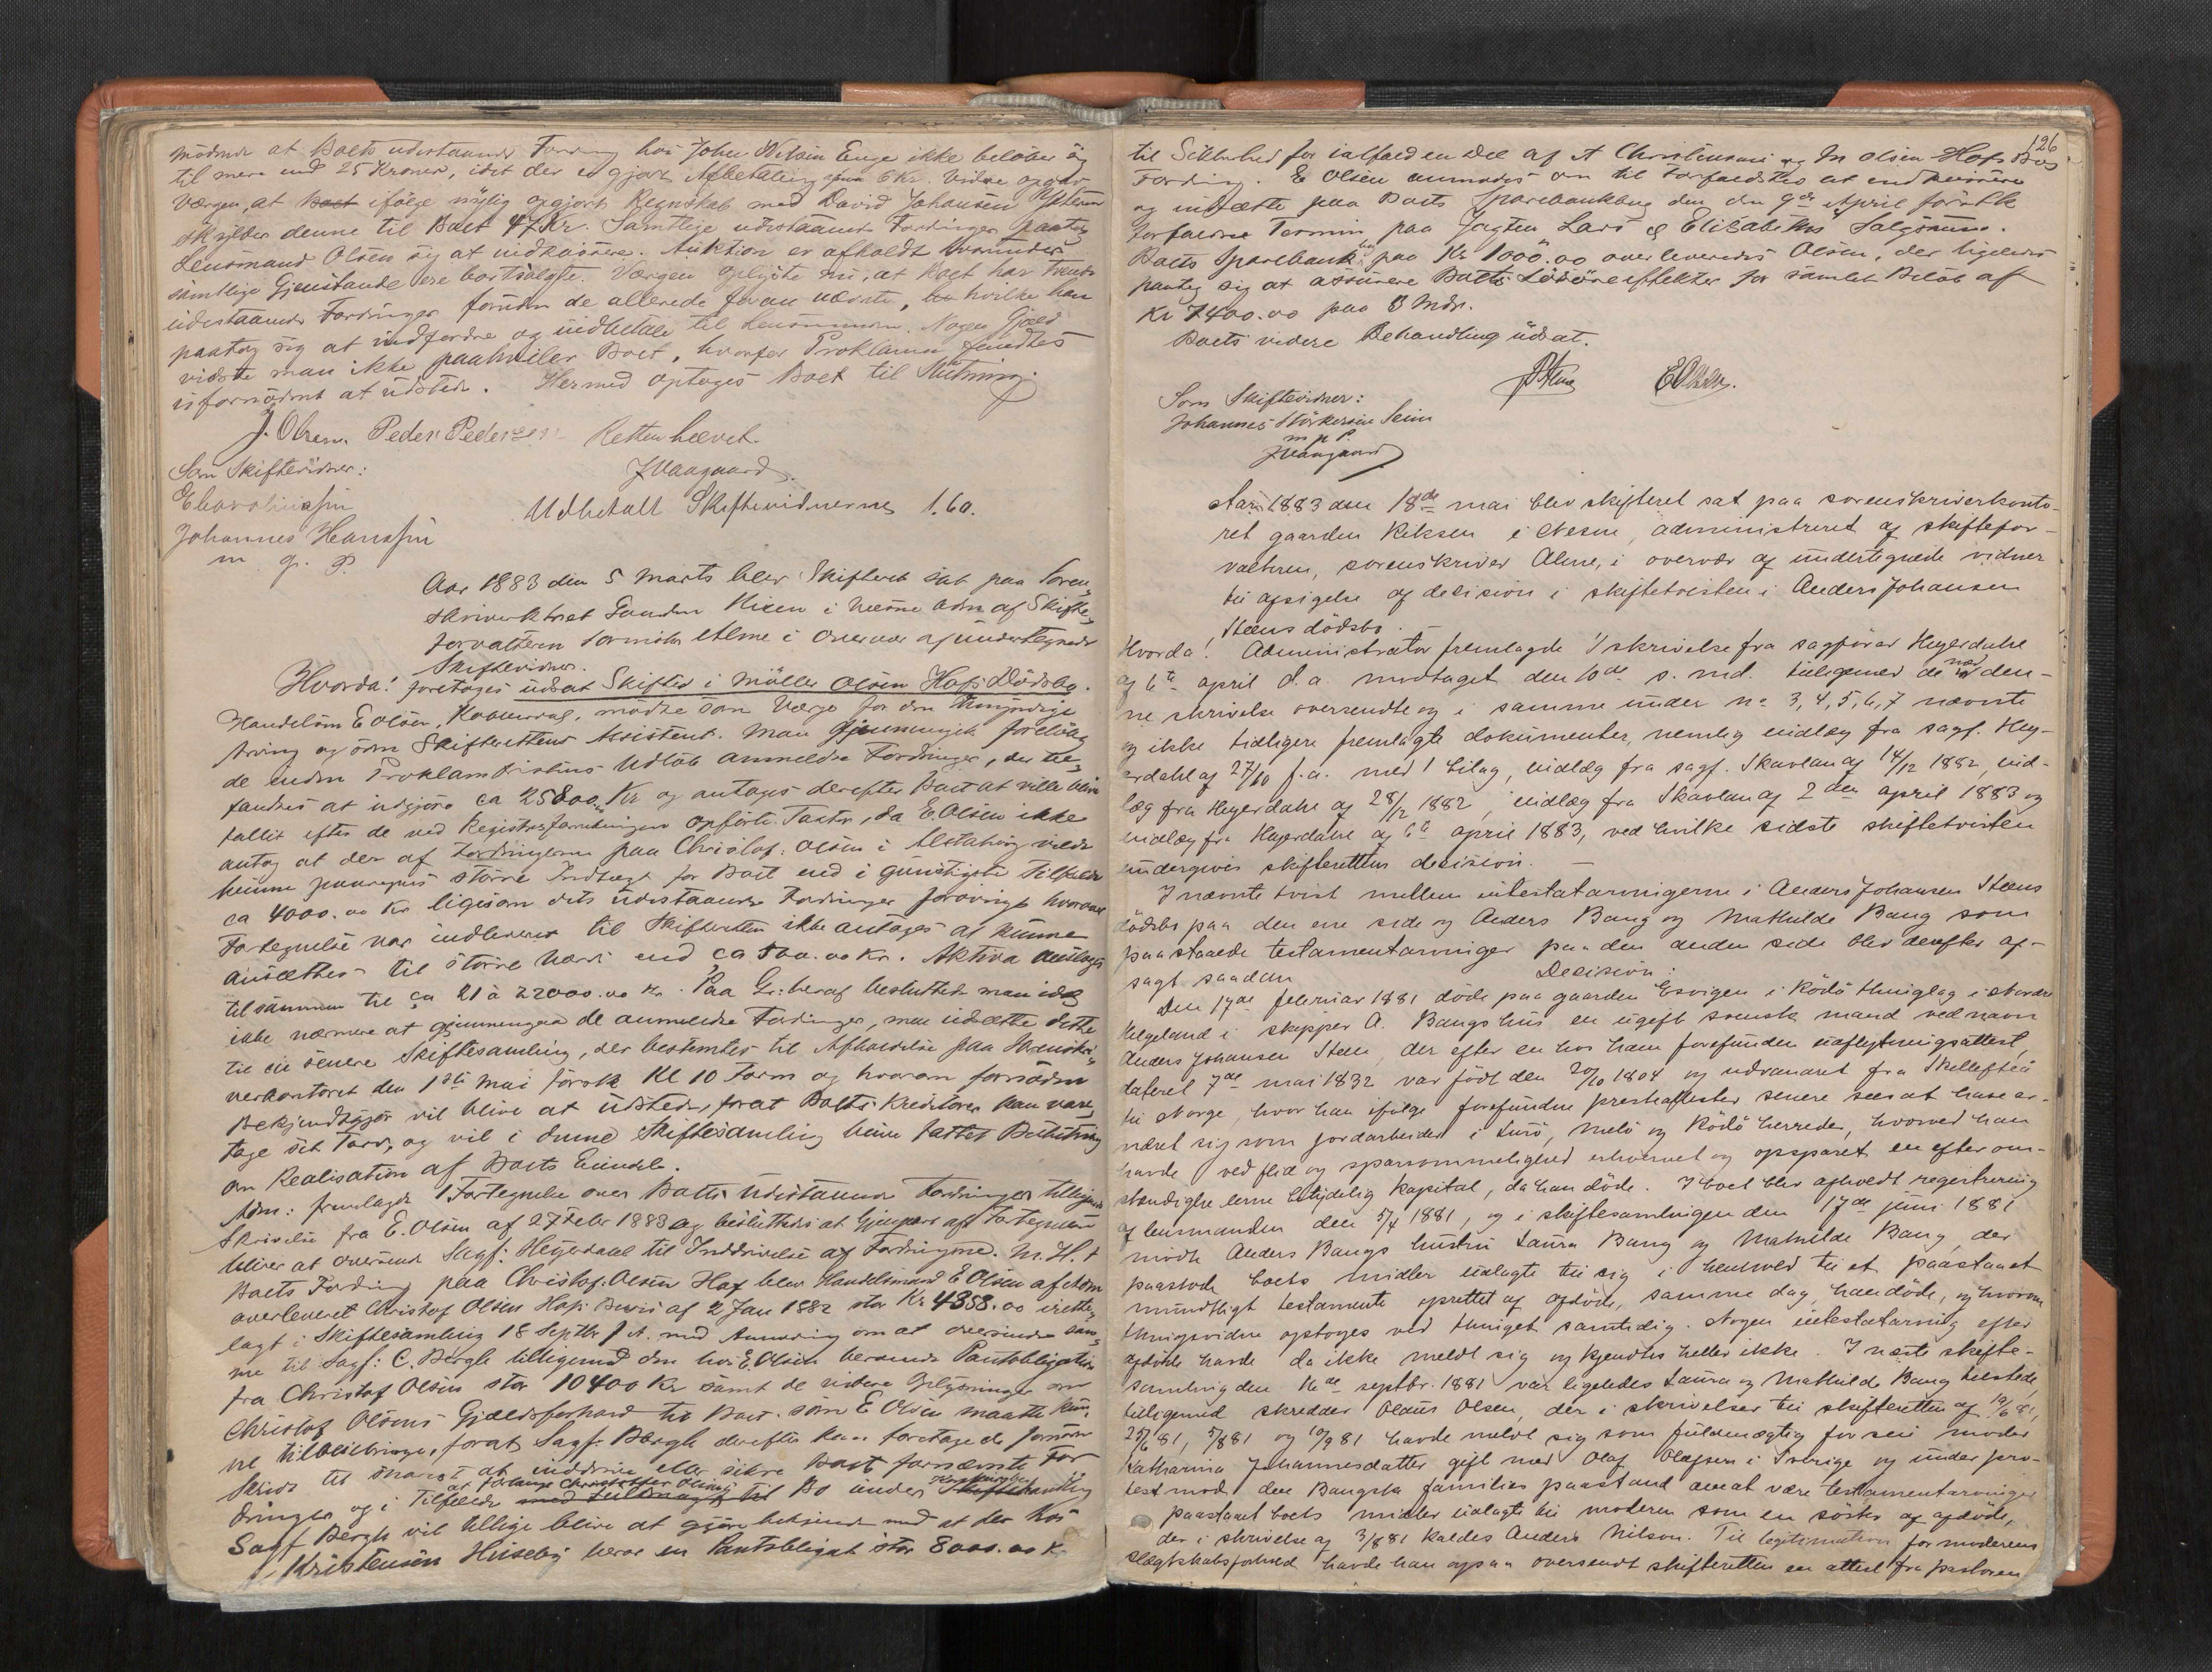 at Boets udestaaende Fordring hos John Nilsen Enge ikke beløber sig
til mere end 25 Kroner, idet der er gjort Afbetaling 6 Kr. Videre opgav
Værgen, at Boet ifølge nylig opgjort Regnskab med David Johansen
skylder denne til Boet 47 Kr. Samtlige udestaaende Fordringer paatog
Lensmand Olsen sig at indkassere. Auktion er afholdt hvorunder
samtlige Gjenstande ere bortsolgte. Værgen oplyste nu, at Boet har
udestaaende Fordringer foruden de allerede foran nævnte, hvilke han
paatog sig at indfordre og indbetale til Lensmanden. Nogen Gjæld
vidste man ikke paahviler Boet, hvorfor Proklama fandtes
ufornødent at udstede. Hermed optoges Boet til Slutning.
J. Olsen. Peder Pedersen Retten hævet.
Som Skiftevidner: JVaagaard
Udbetalt Skiftevidnerne 1.60.
Johannes Hanssen
m. p. P.
Aar 1883 den 5 Marts blev Skifteret sat paa Soren-
skriverktoret Gaarden Rixen i Næsne adm af Skifte-
forvalteren Sorenskr Alme i Overvær af undertegnede
Skiftevidner.
Hvorda! foretoges udsat Skifte i Møller Olsen Hofs Dødsbo.
Handelsm E Olsen, mødte som Værge for den Umyndige
Arving og som Skifterettens Assistent. Man gjennemgik foreløbig
de inden Proklamafristens Udløb anmeldte Fordringer, der be-
fandtes at udgjøre ca 25800 Kr og antoges derefter Boet at ville blive
fallit efter de ved Registreringen opførte Taxter, da E. Olsen ikke
antog at der af Fordringerne paa Christof. Olsen i Alstahoug vilde
kunne paaregnes større Indtægt for Boet end i gunstigste Tilfælde
ca 4000.00 Kr ligesom dets udestaaende Fordringer forøvrigt hvorover
Fortegnelse var indleveret til Skifteretten ikke antoges at kunne
ansættes til større Værdi end ca 500.00 Kr. Aktiva antoges
tilsammen til ca 21 à 22000.00 Kr. Paa Gr: heraf besluttede man idag
ikke nærmere at gjennemgaa de anmeldte Fordringer, men udsætte dette
til en senere Skiftesamling, der bestemtes til Afholdelse paa Sorenskri-
verkontoret den 1ste Mai førstk Kl 10 Form og hvorom fornøden
Bekjendtgjør vil blive at udstede, forat Boets Kreditorer kan vare-
tage sit Tarv, og vil i denne Skiftesamling blive fattet Beslutning
om Realisation af Boets Eiendele.
Adm: fremlagde 1 Fortegnelse over Boets udestaaende Fordringer tilligemed
Skrivelse fra E. Olsen af 27 Febr 1883 og besluttedes at Gjenpart af Fortegnelsen
bliver at oversende Sagf: Heyerdahl til Inddrivelse af Fordringerne. M. H. t
Boets Fordring paa Christof. Olsen Hof blev Handelsmand E Olsen af Adm
overleveret Christof Olsen Hofs Bevis af 2 Jan 1882 stor Kr 4858.00 irette-
lagt i Skiftesamling 18 Septbr f A. med Anmodning om at oversende sam-
me til Sagf: C. Bergh tilligemed den hos E. Olsen beroende Pantobligation
fra Christof Olsen stor 10400 Kr samt de videre Oplysninger om
Christof Olsens Gjældsforhold til Boet som E Olsen maatte kun-
ne tilveiebringe, forat Sagf. Bergh derefter kan foretage de fornødne
Skridt til snarest at inddrive eller sikre Boet fornævnte For-
dringer og i Tilfælde at forlange Christoffer Olsens Bo under
Sagf Bergh vil tillige blive at gjøre bekjendt med at der hos
Kristensen Huseby beror en Pantobligat stor 8000.00 Kr
126
til Sikkerhed for ialfald en Del af A Christensens og M Olsen Hofs Bos
Fordring. E Olsen anmodes om til Forfaldstid at indkassere
og indsætte paa Boets Sparebankbog den den 9de April førstk
forfaldne Termin paa Jagten Lars & Elisabeths Salgssum.
Boets Sparebankbog paa Kr 1000.00 overleveredes Olsen, der ligeledes
paatog sig at assurere Boets Løsøreeffekter for samlet Beløb af
Kr 7400.00 paa 3 Mdr.
Boets videre Behandling udsat.
Som Skiftevidner:
Johannes Størkersen Seim
m p P.
JVaagaard
Aar 1883 den 18de mai blev skifteret sat paa sorenskriverkonto-
ret gaarden Riksen i Nesne, administreret af skiftefor-
valteren, sorenskriver Alme, i overvær af undertegnede vidner
til afsigelse af decision i skiftetvisten i Anders Johansen
Steens dødsbo.
Hvorda! Administrator fremlagde 1 skrivelse fra sagfører Heyerdahl
af 6te april d.a. modtaget den 10de s. md. tilligemed de med den-
ne skrivelse oversendte og i samme under no 3, 4, 5, 6, 7 nævnte
og ikke tidligere fremlagte dokumenter, nemlig indlæg fra sagf. Hey-
erdahl af 27/10 f.a. med 1 bilag, indlæg fra sagf. Skavlan af 14/12 1882, ind-
læg fra Heyerdahl af 28/12 1882, indlæg fra Skavlan af 2den april 1883 og
indlæg fra Heyerdahl af 6te april 1883, ved hvilke sidste skiftetvisten
undergives skifterettens decision. —
I nævnte tvist mellem intestatarvingerne i Anders Johansen Steens
dødsbo paa den ene side og Anders Bang og Mathilde Bang som
paastaaede testamentarvinger paa den anden side blev derefter af-
sagt saadan
Decision:
Den 17de februar 1881 døde paa gaarden Esvigen i Rødø thinglag i Nordre
Helgeland i skipper A. Bangs hus en ugift svensk mand ved navn
Anders Johansen Steen, der efter en hos ham forefunden udflytningsattest,
dateret 7de mai 1832 var født den 20/10 1804 og udvandret fra Skellefteå
til Norge, hvor han ifølge forefundne presteattester senere sees at have er-
næret sig som jordarbeider i Lurø, Melø og Rødø herreder, hvorved han
havde ved flid og sparsommelighed erhvervet og opsparet en efter om-
stændighederne betydelig kapital, da han døde. I boet blev afholdt registrering
af lensmanden den 5/4 1881, og i skiftesamlingen den 17de juni 1881
mødte Anders Bangs hustru Laura Bang og Mathilde Bang, der
paastode boets midler udlagte til sig i henhold til et paastaaet
mundtligt testamente oprettet af afdøde, samme dag han døde, og hvorom
thingsvidne optoges ved thinget samtidig. Nogen intestatarving efter
afdøde havde da ikke meldt sig og kjendtes heller ikke. I næste skifte-
samling den 16de septbr. 1881 var ligeledes Laura og Mathilde Bang tilstede,
tilligemed skredder Olaus Olsen, der i skrivelser til skifteretten af 19/6 81,
25/6 81, 5/8 81 og 10/9 81 havde meldt sig som fuldmægtig for sin moder
Katharina Johannesdatter gift med Olof Olofsen i Sverige og under pro-
test mod den Bangske families paastand om at være testamentarvinger
paastaaet boets midler udlagte til moderen som en søster af afdøde,
der i skrivelse af 3/8 81 kaldes Anders Nilson. Til legitimation for moderens
slægtskabsforhold havde han ogsaa oversendt skifteretten en attest fra pastoren